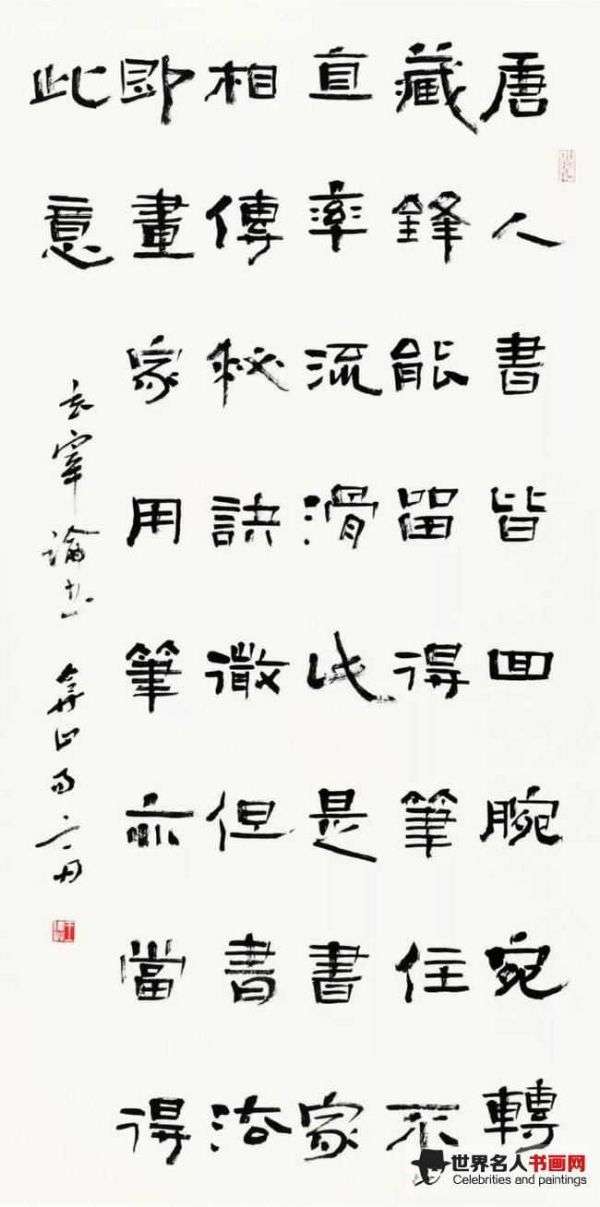 唐人書皆回腕宛轉
藏鋒能留得筆住不
直率流滑此是書家
相傳秘訣微但書法
即畫家用筆亦當得
此意
玄宰論書
世界名人书画网
Celebrities and paintings